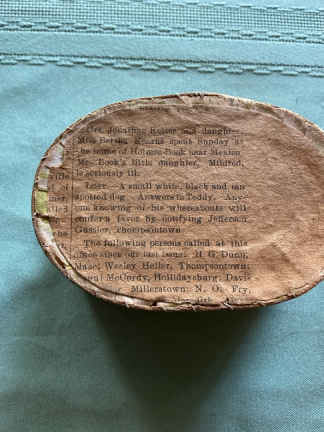 Mrs. Jonathan Keiser and daughter,
Miss Bertha Kearns spent Sunday at
the home of Holmes Book near Mexico.
Mr. Book's little daughter, Mildred,
is seriously ill.
Lost.—A small white, black and tan
spotted dog. Answers to Teddy. Any-
one knowing of his whereabouts will
confer a favor by notifying Jefferson
Thompsontown.
The following persons called at this
office since our last issue: H. G. Dunn,
Wesley Heller, Thompsontown;
McCurdy, Hollidaysburg; Davi
Millerstown; N. O. Fry,